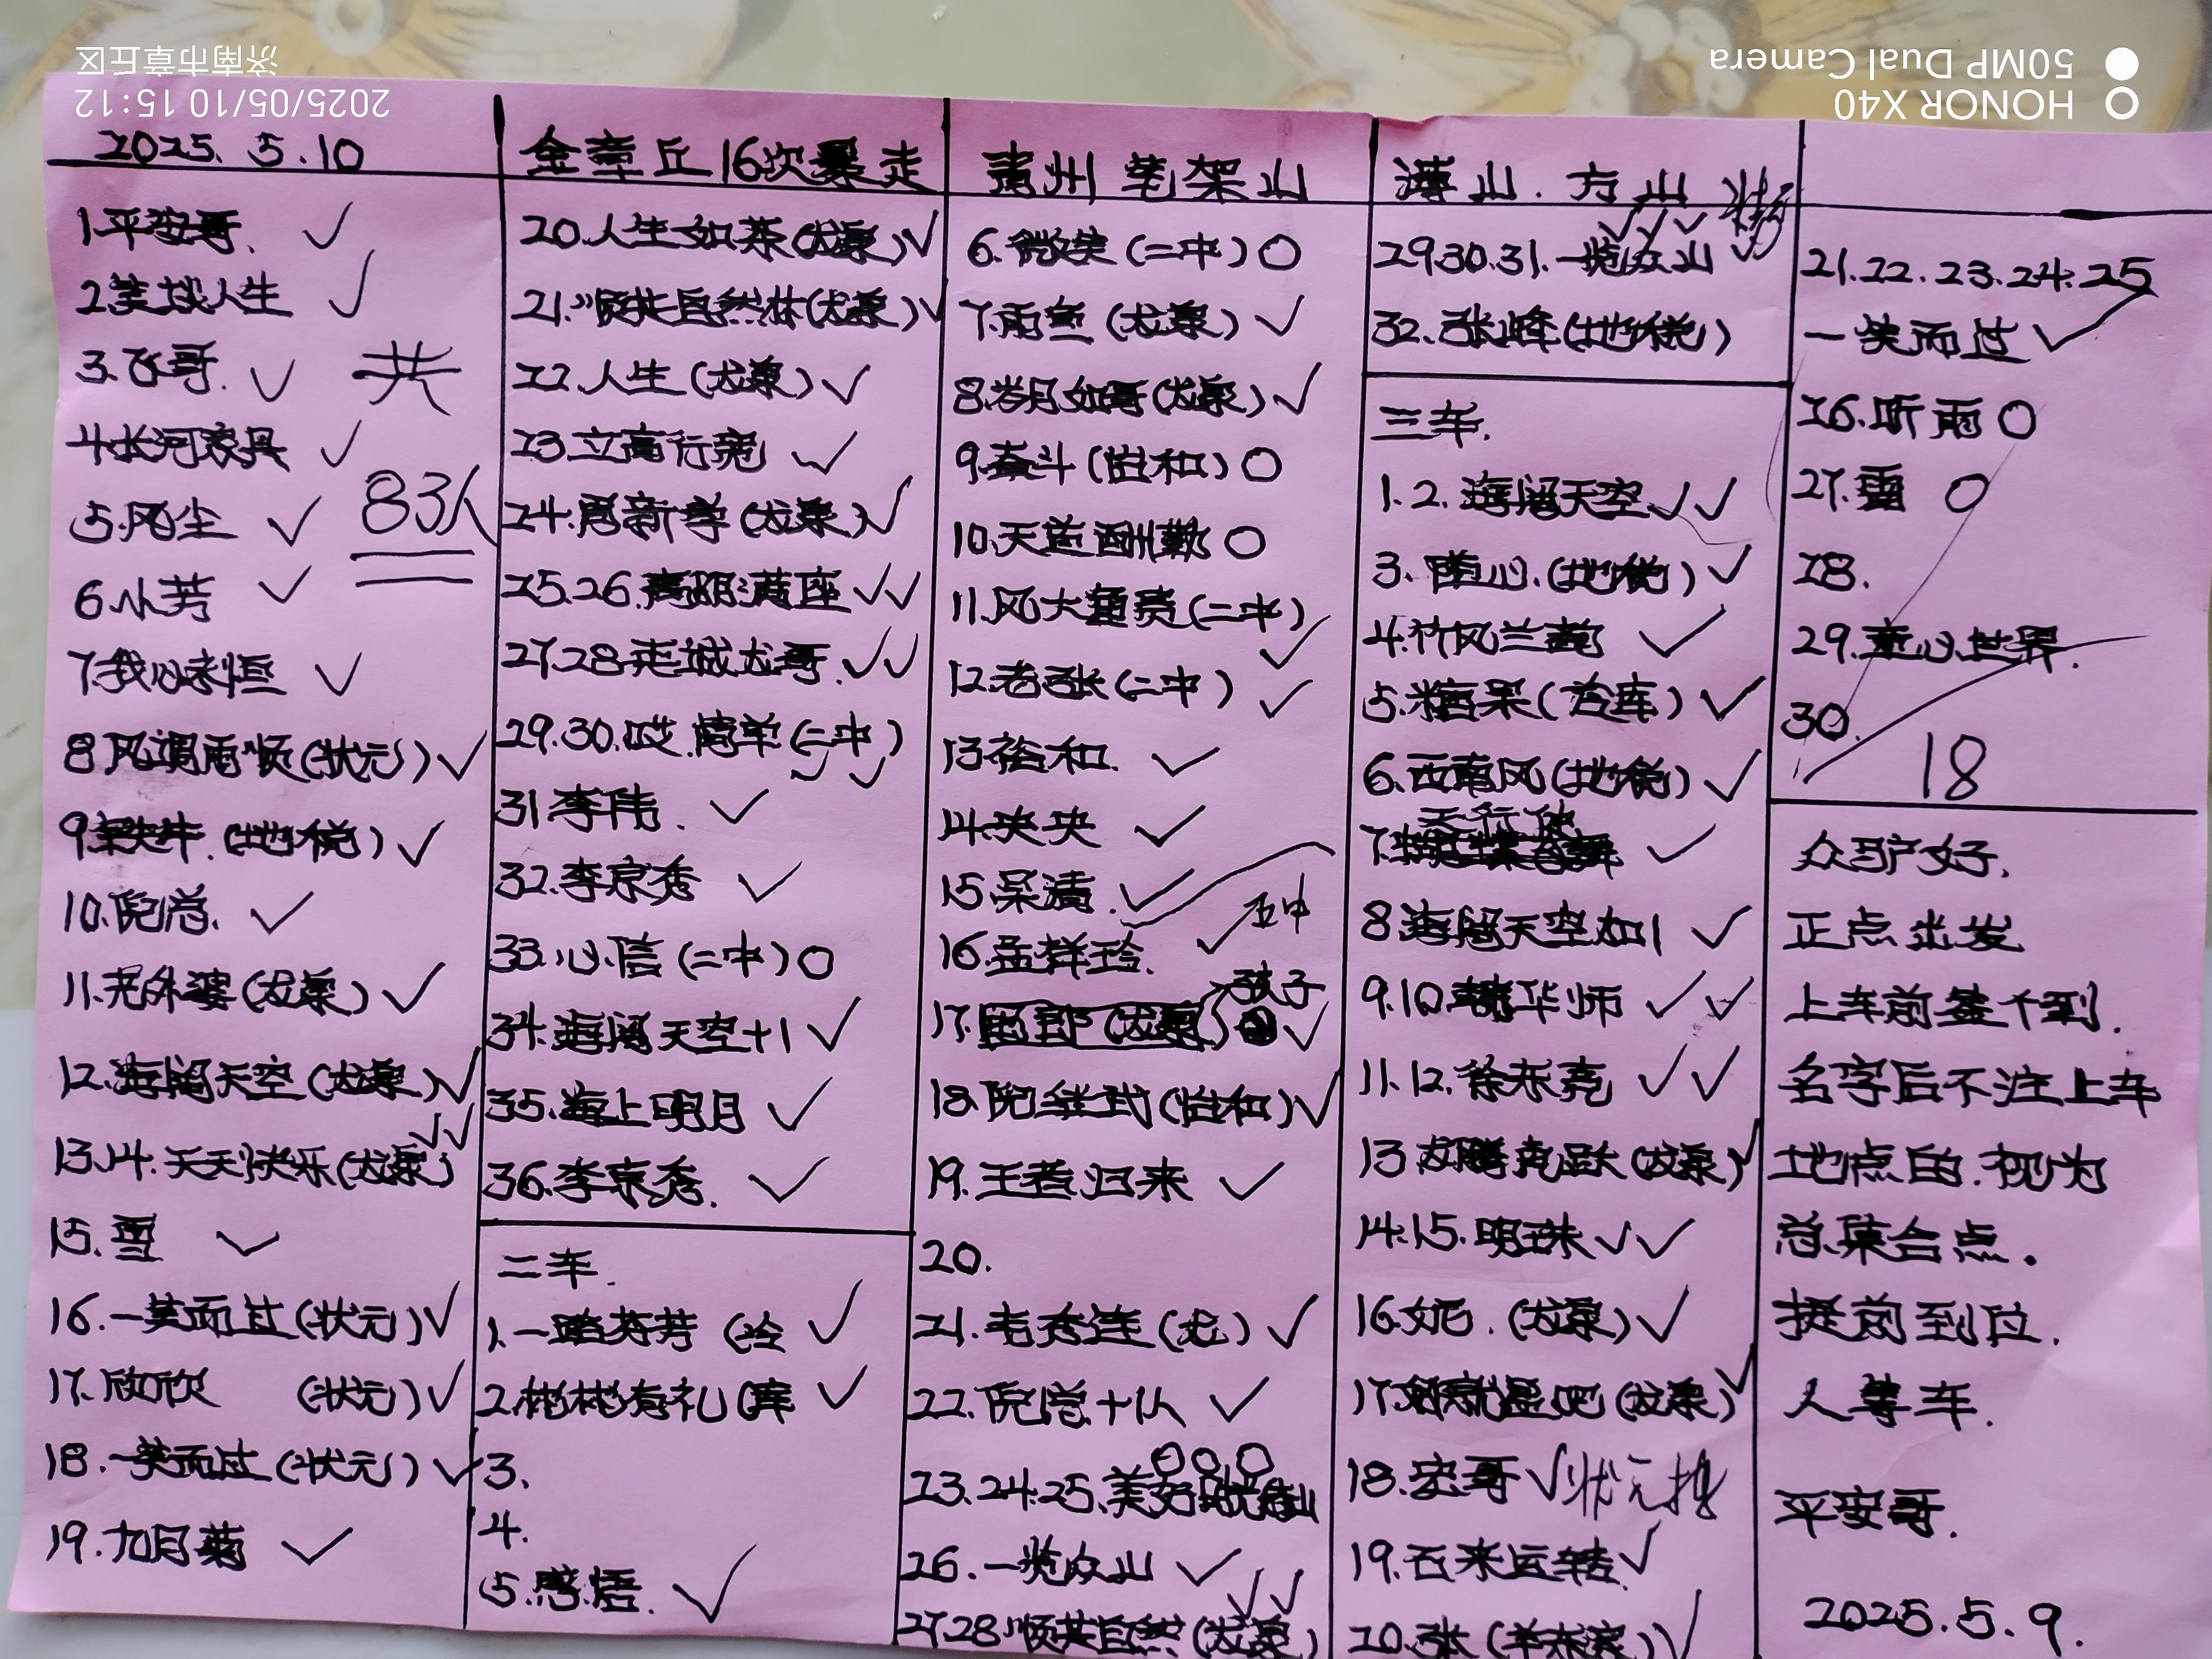 济南市章丘区
2025/05/10 15:12
HONOR X40
50MP Dual Camera
2025. 5. 10
1.平安哥. ✓
2.笑谈人生 ✓
3.飞哥. ✓
共
4.长河家具 ✓
5.风尘 ✓
83人
6.小芳 ✓
7.我心永恒 ✓
8.风调雨顺(状元) ✓
9. (地税) ✓
10.倪总. ✓
11.老外婆(龙泉) ✓
12.海阔天空(龙泉) ✓
13.14.天天快乐(龙泉) ✓✓
15.雪 ✓
16.一笑而过(状元) ✓
17.欣欣 (状元) ✓
18.一笑而过(状元) ✓
19.九月菊 ✓
金章丘16次暴走
20.人生如茶(龙泉) ✓
21.顺其自然 (龙泉) ✓
22.人生(龙泉) ✓
23.立高行宽 ✓
24.周新学(龙泉) ✓
25.26.高朋满座 ✓✓
27.28.走城龙哥. ✓✓
29.30.哎.简单(二中) ✓✓
31.李伟. ✓
32.李京秀 ✓
33.心信(二中) O
34.海阔天空+1 ✓
35.海上明月 ✓
36.李京秀. ✓
二车.
1.一路芬芳 (冷 ✓
2.彬彬有礼(库 ✓
3.
4.
5.感悟. ✓
青州 笔架山
6.微笑(二中) O
7.雨鱼(龙泉) ✓
8.岁月如哥(龙泉) ✓
9.奋斗(怡和) O
10.天道酬勤 O
11.风大鱼贵(二中) ✓
12.老张(二中) ✓
13.裕和. ✓
14.央央 ✓
15.吴清. ✓
五中
16.孟祥玲. ✓
孩子
17. (龙泉) ✓
18.倪继武(怡和) ✓
19.王者归来 ✓
20.
21.韦秀莲(龙) ✓
22.倪总+1人 ✓
O O O
23.24.25.美好
26.一览众山 ✓
27.28.顺其自然(龙泉) ✓✓
薄山. 方山
29.30.31.一览众山
32.张峰(地税)
三车.
1.2.海阔天空 ✓✓
3.随心.(地税) ✓
4.竹风兰韵 ✓
5.糖果(冶库) ✓
6.西南风(地税) ✓
天行健
7. ✓
8.海阔天空加1 ✓
9.10.韩华师 ✓✓
11.12.徐东亮 ✓✓
13.龙腾亮跃(龙泉) ✓
14.15.明珠 ✓✓
16.妮.(龙泉) ✓
17. (龙泉) ✓
18.宏哥 ✓ 状元
19.石来运转 ✓
20.张(羊东家) ✓
21.22.23.24.25
一笑而过 ✓
26.听雨 O
27.雷 O
28.
29.童心世界.
30.
18
众驴好.
正点出发
上车前签个到.
名字后不注上车
地点的.视为
总集合点。
提前到位.
人等车.
平安哥.
2025.5.9.